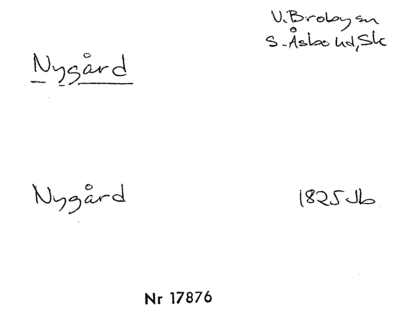 V. Broby sn
Nygård
S. Åsbo hd, Sk
Nygård 1825 Jb
Nr 17876